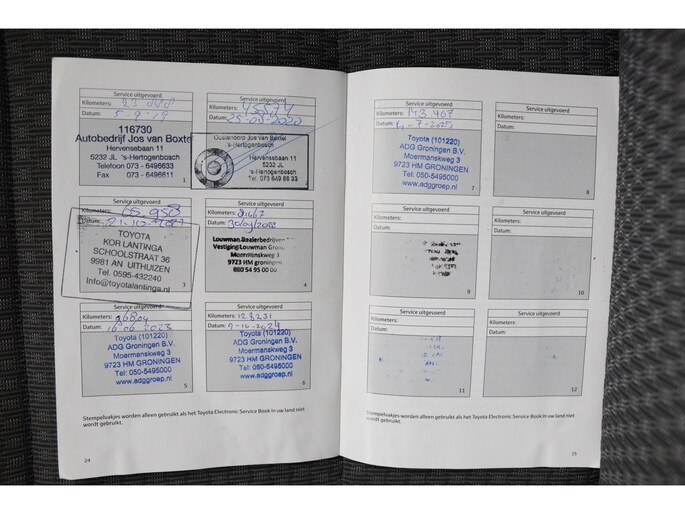 Service uitgevoerd
Kilometers: 23
Datum: 5-9-19
116730
Autobedrijf Jos van Boxtel
Hervensebaan 11
5232 JL 's-Hertogenbosch
Telefoon 073 - 6496633
Fax 073 - 6496611
1
Service uitgevoerd
Kilometers: 45574
Datum: 25-09-2020
Jos van Boxtel
's-Hertogenbosch
Hervensebaan 11
5232 JL
's-Hertogenbosch
Tel. 073 649 66 33
Service uitgevoerd
Kilometers: 65 958
Datum: 21-10-2021
TOYOTA
KOR LANTINGA
SCHOOLSTRAAT 36
9981 AN UITHUIZEN
Tel. 0595-432240
Info@toyotalantinga.nl
3
Service uitgevoerd
Kilometers:
Datum: 30/09/2022
Louwman Dealerbedrijven
Vestiging Louwman Gron
Moermanskweg 3
9723 HM groningen
050 54 95 00 00
4
Service uitgevoerd
Kilometers: 96804
Datum: 16-06-2023
Toyota (101220)
ADG Groningen B.V.
Moermanskweg 3
9723 HM GRONINGEN
Tel: 050-5495000
www.adggroep.nl
5
Service uitgevoerd
Kilometers: 12 231
Datum: 9-10-2024
Toyota (101220)
ADG Groningen B.V.
Moermanskweg 3
9723 HM GRONINGEN
Tel: 050-5495000
www.adggroep.nl
6
Stempelvakjes worden alleen gebruikt als het Toyota Electronic Service Book in uw land niet
wordt gebruikt.
24
Service uitgevoerd
Kilometers: 143.407
Datum: -7-2025
Toyota (101220)
ADG Groningen B.V.
Moermanskweg 3
9723 HM GRONINGEN
Tel: 050-5495000
www.adggroep.nl
7
Service uitgevoerd
Kilometers:
Datum:
8
Service uitgevoerd
Kilometers:
Datum:
9
Service uitgevoerd
Kilometers:
Datum:
10
Service uitgevoerd
Kilometers:
Datum:
11
Service uitgevoerd
Kilometers:
Datum:
12
Stempelvakjes worden alleen gebruikt als het Toyota Electronic Service Book in uw land niet
wordt gebruikt.
25